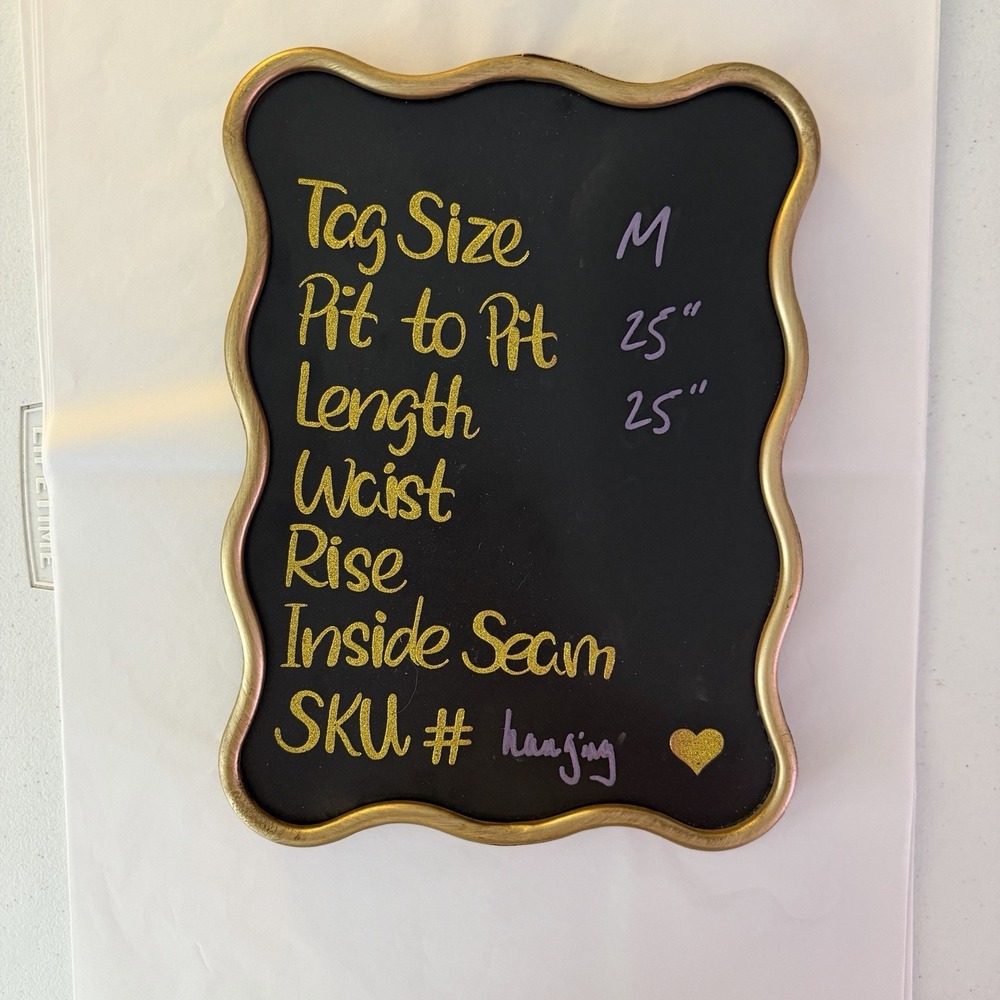 Tag Size M
Pit to Pit 25"
Length 25"
Waist
Rise
Inside Seam
SKU # hanging
LIFETIME